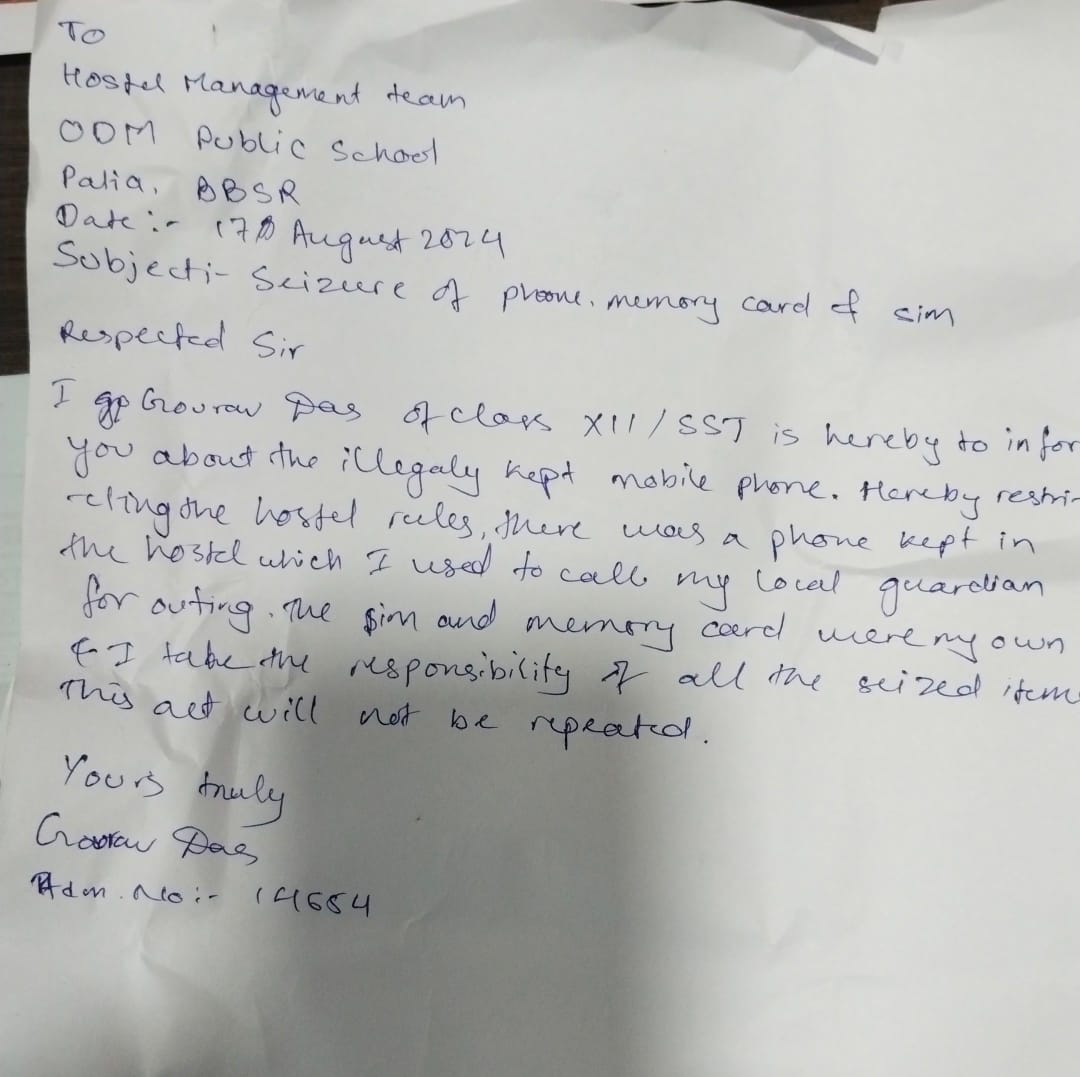 To
Hostel Management team
ODM Public School
Patia, BBSR
Date :- 17 August 2024
Subject:- Seizure of phone, memory card & sim
Respected Sir
I Gourav Das of class XII/SST is hereby to infor
you about the illegaly kept mobile phone. Hereby restri-
cting the hostel rules, there was a phone kept in
the hostel which I used to call my local guardian
for outing. The sim and memory card were my own
& I take the responsibility of all the seized items
This act will not be repeated.
Yours truly
Gourav Das
Adm. No :- 14654